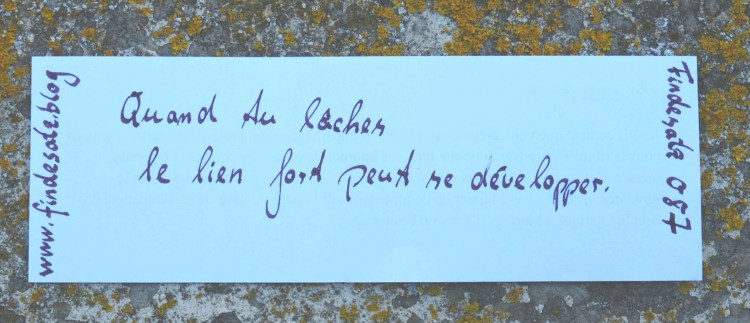 www.findesatz.blog
Quand tu lâches
le lien fort peut se développer.
Findesatz 087